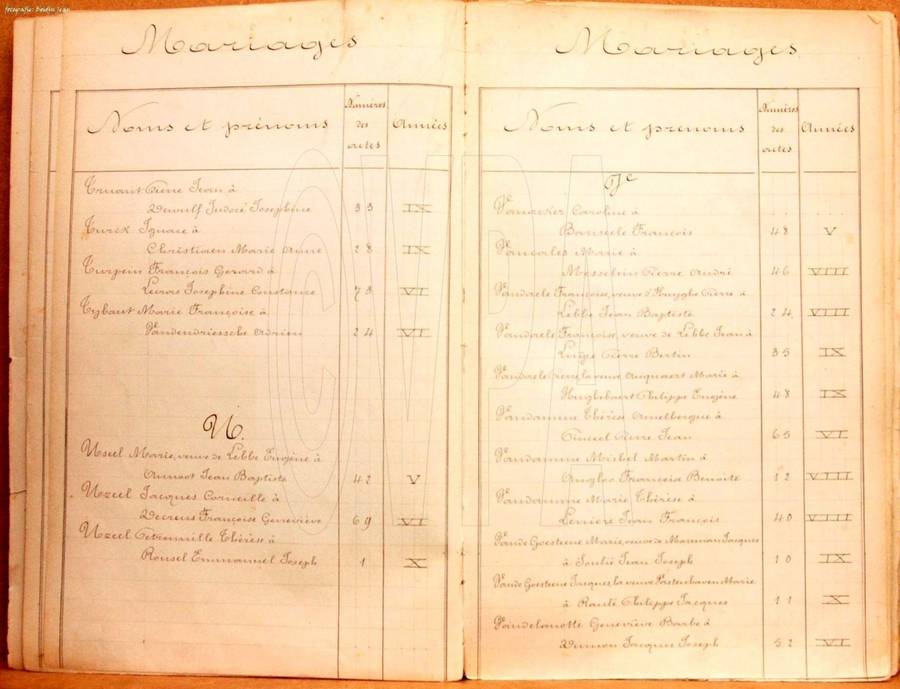 fotografie: Boutin Jean
Mariages
Noms et prénoms
Numéros
des
actes
Années
Truant Pierre Jean à
Dewulf Judoie Josephine 33 IX
Turck Ignace à
Christiaen Marie Anne 28 IX
Turpein François Gerard à
Leurs Josephine Constance 73 VI
Tybaut Marie Françoise à
Vandendriessche Adrien 24 VI
U.
Uzeel Marie, veuve de Lebbe Eugène à
Jean Baptiste 42 V
Uzeel Jacques Corneille à
Decreus Françoise Geneviève 69 VI
Uzeel Petronnille Thérèse à
Rousel Emmanuel Joseph 1 X
Mariages
Noms et prénoms
Numéros
des
actes
Années
V
Vanacker Caroline à
Banseele François 48 V
Marie à
Messelin Pierre André 46 VIII
Vandaele Françoise, veuve d'Huyghe Pierre à
Lebbe Jean Baptiste 24 VIII
Vandaele Françoise, veuve de Lebbe Jean à
Pierre Bertin 35 IX
Vandaele Pierre, la veuve Marie à
Hughebaert Philippe Eugène 48 IX
Vandamme Thérèse Amelbergue à
Pierre Jean 65 VI
Vandamme Michel Martin à
Françoise Benoite 12 VIII
Vandamme Marie Thérèse à
Leniere Jean François 40 VIII
Vande Goesteene Marie, veuve de Jacques
à Soulié Jean Joseph 10 IX
Vande Goesteene Jacques la veuve Marie
à Philippe Jacques 11 X
Vandelanotte Geneviève Barbe à
Jacques Joseph 52 VI